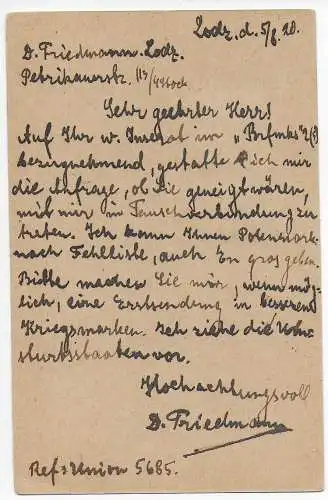 Lodz, d. 5/6. 20.
D. Friedmann. Lodz.
Petrikauerstr. 113/4 Stock
Sehr geehrter Herr!
Auf Ihr w. Inserat im
bezugnehmend, gestatte ich mir
die Anfrage, ob Sie geneigt wären,
mit mir in Tauschverbindung zu
treten. Ich kann Ihnen Polenmark.
nach Fehlliste, auch En gros geben.
Bitte machen Sie mir, wenn mög-
lich, eine Erstsendung in besseren
Kriegsmarken. Ich ziehe die
vor.
Hochachtungsvoll
D. Friedmann
Ref: Union 5685.